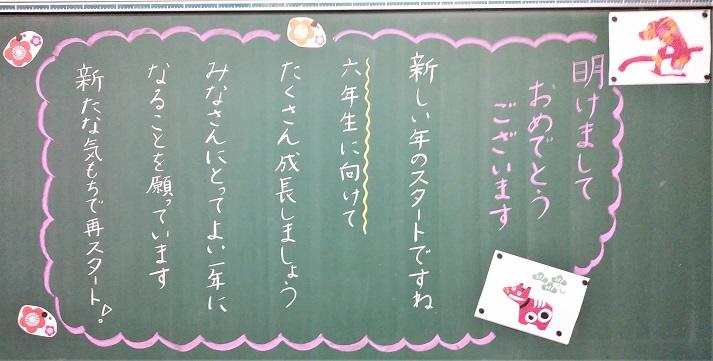 明けまして
おめでとう
ございます
新しい年のスタートですね
六年生に向けて
たくさん成長しましょう
みなさんにとってよい一年に
なることを願っています
新たな気もちで再スタート!